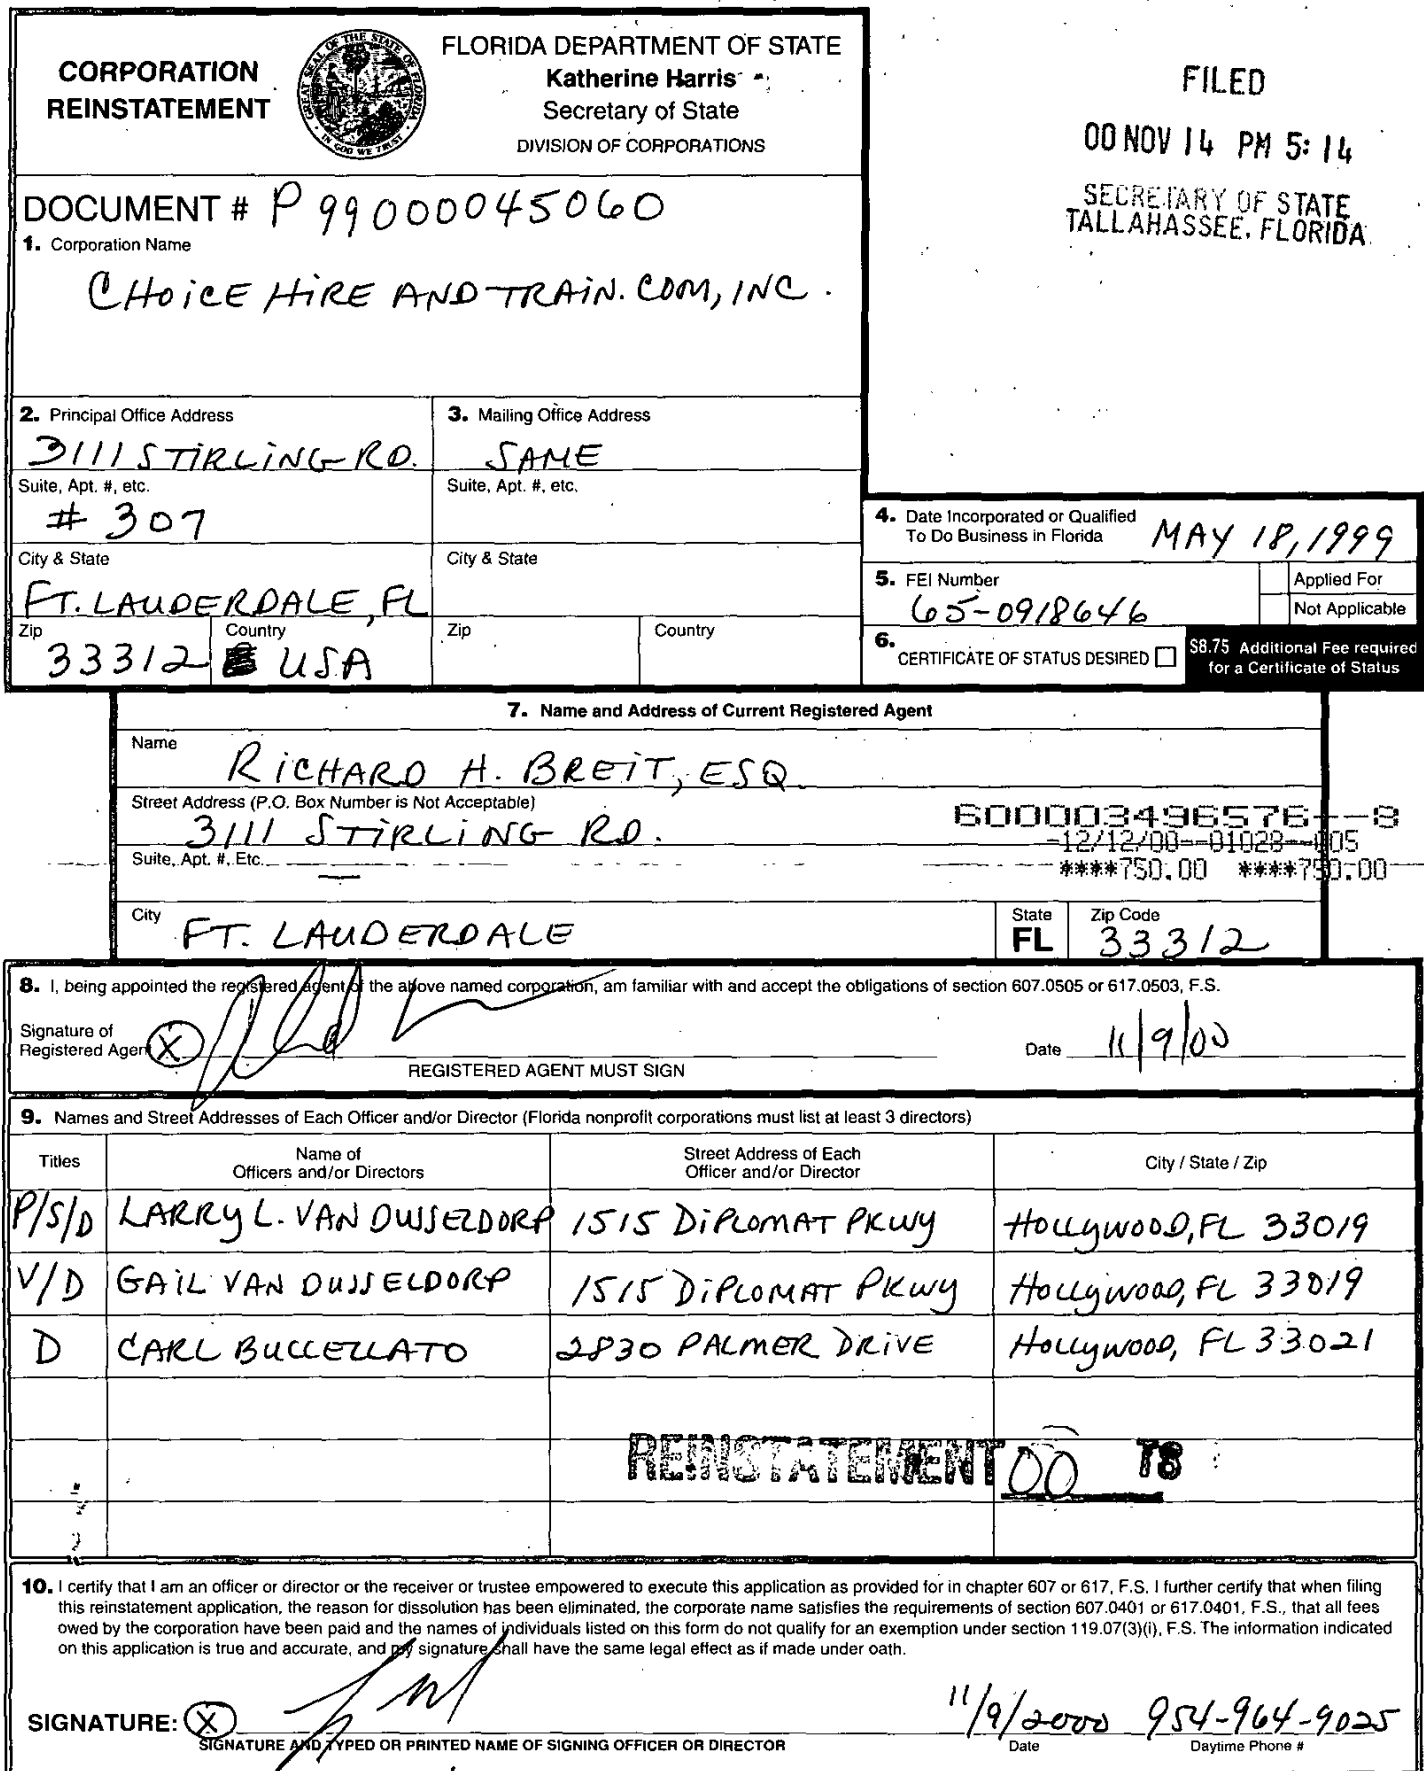 CORPORATION
REINSTATEMENT
GREAT SEAL OF THE STATE OF FLORIDA
IN GOD WE TRUST
FLORIDA DEPARTMENT OF STATE
Katherine Harris
Secretary of State
DIVISION OF CORPORATIONS
FILED
00 NOV 14 PM 5:14
SECRETARY OF STATE
TALLAHASSEE, FLORIDA
DOCUMENT # P99000045060
1. Corporation Name
CHOICE HIRE AND TRAIN.COM, INC.
2. Principal Office Address
3111 STIRLING RD.
3. Mailing Office Address
SAME
Suite, Apt. #, etc.
# 307
Suite, Apt. #, etc.
City & State
FT. LAUDERDALE, FL
City & State
Zip
33312
Country
USA
Zip
Country
4. Date Incorporated or Qualified
To Do Business in Florida
MAY 18, 1999
5. FEI Number
65-0918646
Applied For
Not Applicable
6. CERTIFICATE OF STATUS DESIRED
$8.75 Additional Fee required
for a Certificate of Status
7. Name and Address of Current Registered Agent
Name
RICHARD H. BREIT, ESQ.
Street Address (P.O. Box Number is Not Acceptable)
3111 STIRLING RD.
600003496576--8
-12/12/00--01028--005
****750.00 ****750.00
Suite, Apt. #, Etc.
City
FT. LAUDERDALE
State
FL
Zip Code
33312
8. I, being appointed the registered agent of the above named corporation, am familiar with and accept the obligations of section 607.0505 or 617.0503, F.S.
Signature of
Registered Agent
X
REGISTERED AGENT MUST SIGN
Date 11/9/00
9. Names and Street Addresses of Each Officer and/or Director (Florida nonprofit corporations must list at least 3 directors)
Titles
Name of
Officers and/or Directors
Street Address of Each
Officer and/or Director
City / State / Zip
P/S/D LARRY L. VAN DUSSELDORP 1515 DIPLOMAT PKWY HOLLYWOOD, FL 33019
V/D GAIL VAN DUSSELDORP 1515 DIPLOMAT PKWY HOLLYWOOD, FL 33019
D CARL BUCCELLATO 2830 PALMER DRIVE HOLLYWOOD, FL 33021
REINSTATEMENT 00 TB
10. I certify that I am an officer or director or the receiver or trustee empowered to execute this application as provided for in chapter 607 or 617, F.S. I further certify that when filing
this reinstatement application, the reason for dissolution has been eliminated, the corporate name satisfies the requirements of section 607.0401 or 617.0401, F.S., that all fees
owed by the corporation have been paid and the names of individuals listed on this form do not qualify for an exemption under section 119.07(3)(i), F.S. The information indicated
on this application is true and accurate, and my signature shall have the same legal effect as if made under oath.
SIGNATURE: X
11/9/2000 954-964-9025
SIGNATURE AND TYPED OR PRINTED NAME OF SIGNING OFFICER OR DIRECTOR
Date
Daytime Phone #